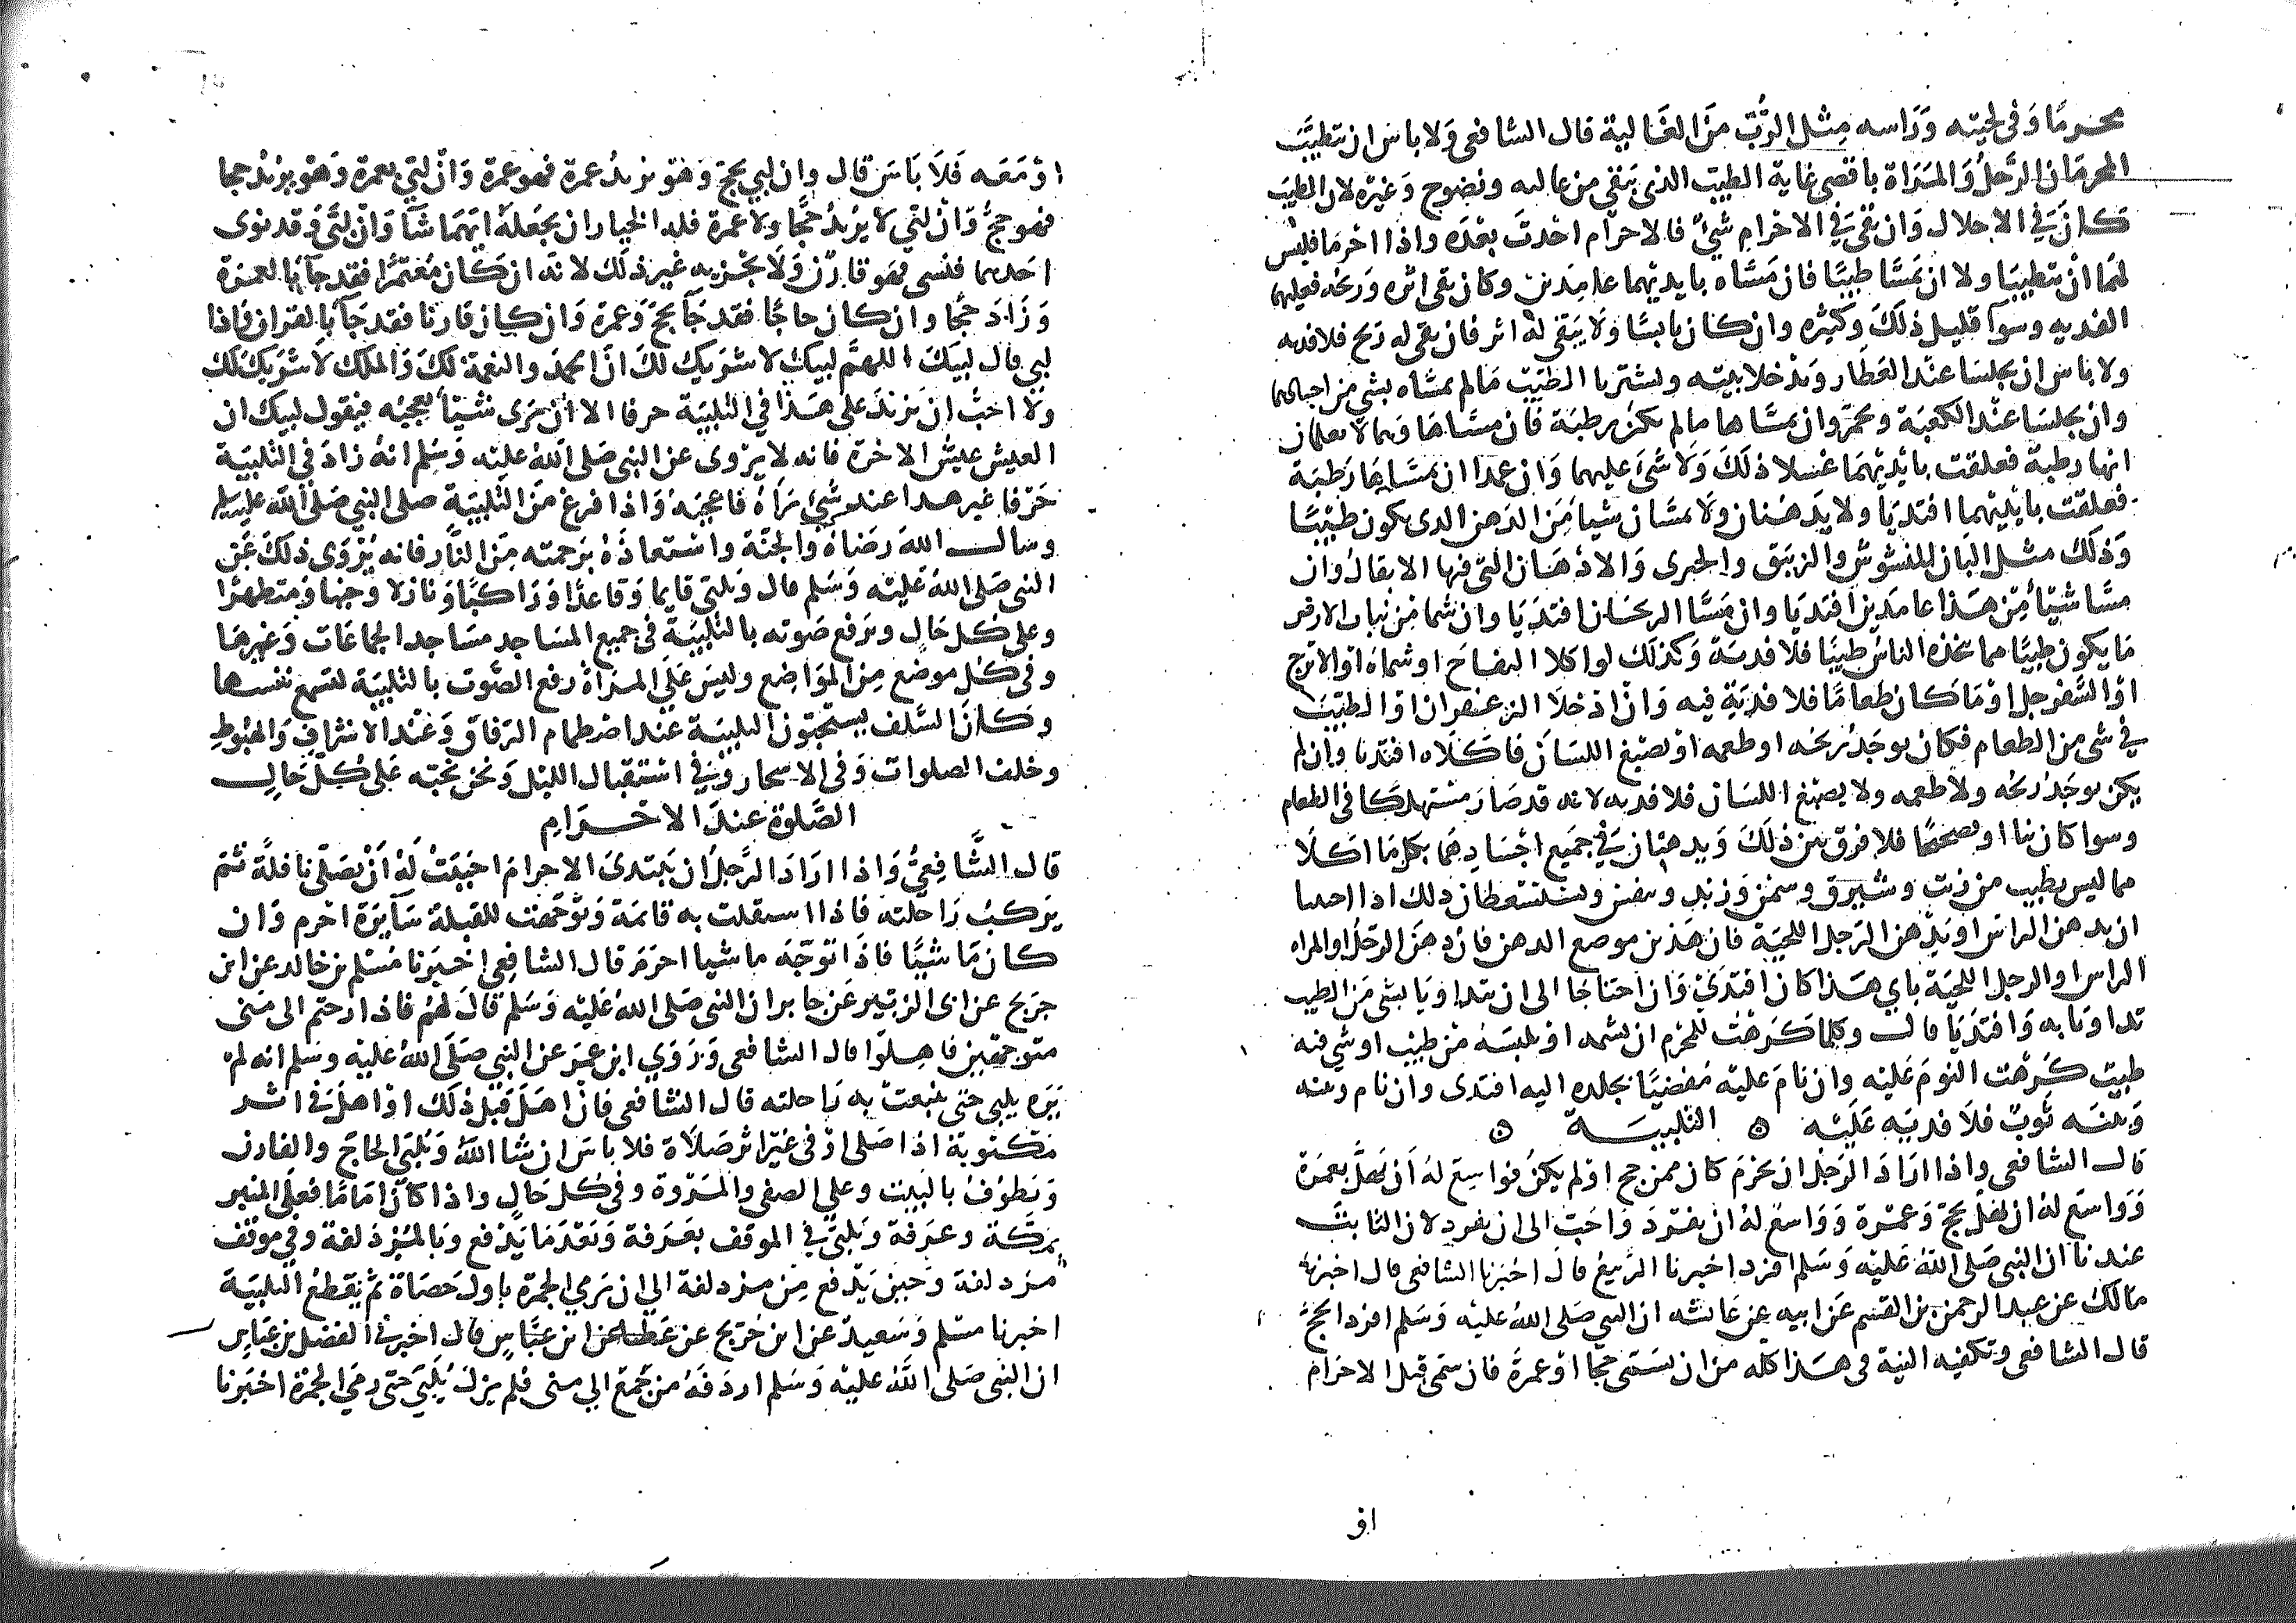 محرما وفي لحيته وراسه مثل الرُّبّ من الغالية قال الشافعي ولا باس ان يتطيب
المحرمان الرجل والمراة باقصى غاية الطيب الذي يبقى من غاليه ونضوح وغيره لان الطيب
كان في الاحلال وان بقي في الاحرام شيٌ فالاحرام احدث بعده واذا احرما فليس
لهما ان يتطيبا ولا ان يمسا طيبا فان مساه بايديهما عامدين وكان بقي اثره وريحه فعليهما
الفديه وسوا قليل ذلك وكثيره وان كان يابسا ولا يبقى له اثر فان بقي له ريح فلا فديه
ولا باس ان يجلسا عند العطار ويدخلا بيته ويشتريا الطيب ما لم يمساه بشي من اجسادهما
وان يجلسا عند الكعبة وهي تجمر وان يمساها ما لم يكن رطبة فان مساها وهما لا يعلمان
انها رطبة فعلقت بايديهما غسلا ذلك ولا شيَ عليهما وان عمدا ان يمساها رطبة
فعلقت بايديهما افتديا ولا يدهنان ولا يمسان شيا من الدهن الذي يكون طيبا
وذلك مثل البان المنشوش والزنبق والخيري والادهان التي فيها الابقال وان
مسا شيئا من هذا عامدين افتديا وان مسا الريحان افتديا وان شما من نبات الارض
ما يكون طيبا مما يتخذه الناس طيبا فلا فدية وكذلك لو اكلا التفاح او شماه او الاترج
او السفرجل او ما كان طعاما فلا فدية فيه وان ادخلا الزعفران او الطيب
في شي من الطعام فكان يوجد ريحه او طعمه او يصبغ اللسان فاكلاه افتديا وان لم
يكن يوجد ريحه ولا طعمه ولا يصبغ اللسان فلا فديه لانه قد صار مستهلكا في الطعام
وسوا كان نيا او نضيجا فلا فرق بين ذلك ويدهنان في جميع اجسادهما بكل ما اكلا
مما ليس بطيب من زيت وشيرق وسمن وزبد وسقسق ويستعطان ذلك اذا اجتنبا
ان يدهنا الراس او يدهن الرجل اللحية فان هذين موضع الدهن فان دهن الرجل او المراه
الراس او الرجل اللحية باي هذا كان افتدى وان احتاجا الى ان يتداويا بشي من الطيب
تداويا به وافتديا قال وكلما كرهت للمحرم ان يشمه او يلبسه من طيب او شي فيه
طيب كرهت النوم عليه وان نام عليه مفضيا بجلده اليه افتدى وان نام وبينه
وبينه ثوب فلا فديه عليه ۞ التلبيــة ۞
قال الشافعي واذا اراد الرجل ان يحرم كان ممن حج او لم يكن فواسع له ان يهل بعمرة
وواسع له ان يهل بحج وعمرة وواسع له ان يفرد واحب الى ان يفرد لان الثابت
عندنا ان النبي صلى الله عليه وسلم افرد اخبرنا الربيع قال اخبرنا الشافعي قال اخبرنا
مالك عن عبد الرحمن بن القسم عن ابيه عن عائشه ان النبي صلى الله عليه وسلم افرد الحج
قال الشافعي وتكفيه النية في هذا كله من ان يسمي حجا او عمرة فان سمى قبل الاحرام
او
او معه فلا باس قال وان لبي بحج وهو يريد عمرة فهو عمرة وان لبى بعمرة وهو يريد حجا
فهو حج وان لبى لا يريد حجا ولا عمرة فله الخيار ان يجعله ايهما شآ وان لبى وقد نوى
احدهما فنسي فهو قارن ولا يجزيه غير ذلك لانه ان كان معتمرا فقد جآ بالعمرة
وزاد حجا وان كان حاجا فقد جآ بحج وعمرة وان كان قارنا فقد جآ بالقران فاذا
لبى قال لبيك اللهم لبيك لا شريك لك ان الحمد والنعمة لك والملك لا شريك لك
ولا احب ان يزيد على هذا في التلبية حرفا الا ان يرى شيئا يعجبه فيقول لبيك ان
العيش عيش الاخرة فانه لا يروى عن النبي صلى الله عليه وسلم انه زاد في التلبية
حرفا غير هذا عند شي رَآه فاعجبه واذا فرغ من التلبية صلى النبي صلى الله عليه وسلم
وسال الله رضاه والجنة واستعاذه برحمته من النار فانه يروى ذلك عن
النبي صلى الله عليه وسلم قال ويلبي قايما وقاعدا وراكبا ونازلا وجنبا ومتطهرا
وعلى كل حال ويرفع صوته بالتلبية في جميع المساجد مساجد الجماعات وغيرها
وفي كل موضع من المواضع وليس على المراة رفع الصوت بالتلبية لتسمع نفسها
وكان السلف يستحبون التلبية عند اضطمام الرفاق وعند الاشراف والهبوط
وخلف الصلوات وفي الاسحار وفي استقبال الليل ونحن نحبه على كل حال
الصلوة عند الاحرام
قال الشافعي واذا اراد الرجل ان يبتدى الاحرام احببت له ان يصلي نافلة ثم
يركب راحلته فاذا استقلت به قائمة وتوجهت للقبلة سآيرة احرم وان
كان ماشيا فاذا توجه ماشيا احرم قال الشافعي اخبرنا مسلم بن خالد عن ابن
جريج عن ابى الزبير عن جابر ان النبي صلى الله عليه وسلم قال لهم فاذا رحتم الى منى
متوجهين فاهلوا قال الشافعي وروي ابن عمر عن النبي صلى الله عليه وسلم انه لم
يره يلبي حتى تنبعث به راحلته قال الشافعي فان اهل قبل ذلك او اهل في اثر
مكتوبة اذا صلى او في غير اثر صلاة فلا باس ان شا الله ويلبي الحاج والقارن
ويطوف بالبيت وعلى الصفى والمروة وفي كل حال واذا كان اماما فعلى المنبر
بمكة وعرفة ويلبي في الموقف بعرفة وبعد ما يدفع وبالمزدلفة وفي موقف
مزدلفة وحين يدفع من مزدلفة الي ان يرمي الجمرة باول حصاة ثم يقطع التلبية
اخبرنا مسلم وسعيد عن ابن جريج عن عطا عن ابن عباس قال اخبرني الفضل بن عباس
ان النبي صلى الله عليه وسلم اردفه من جمع الي منى فلم يزل يلبي حتى رمى الجمرة اخبرنا